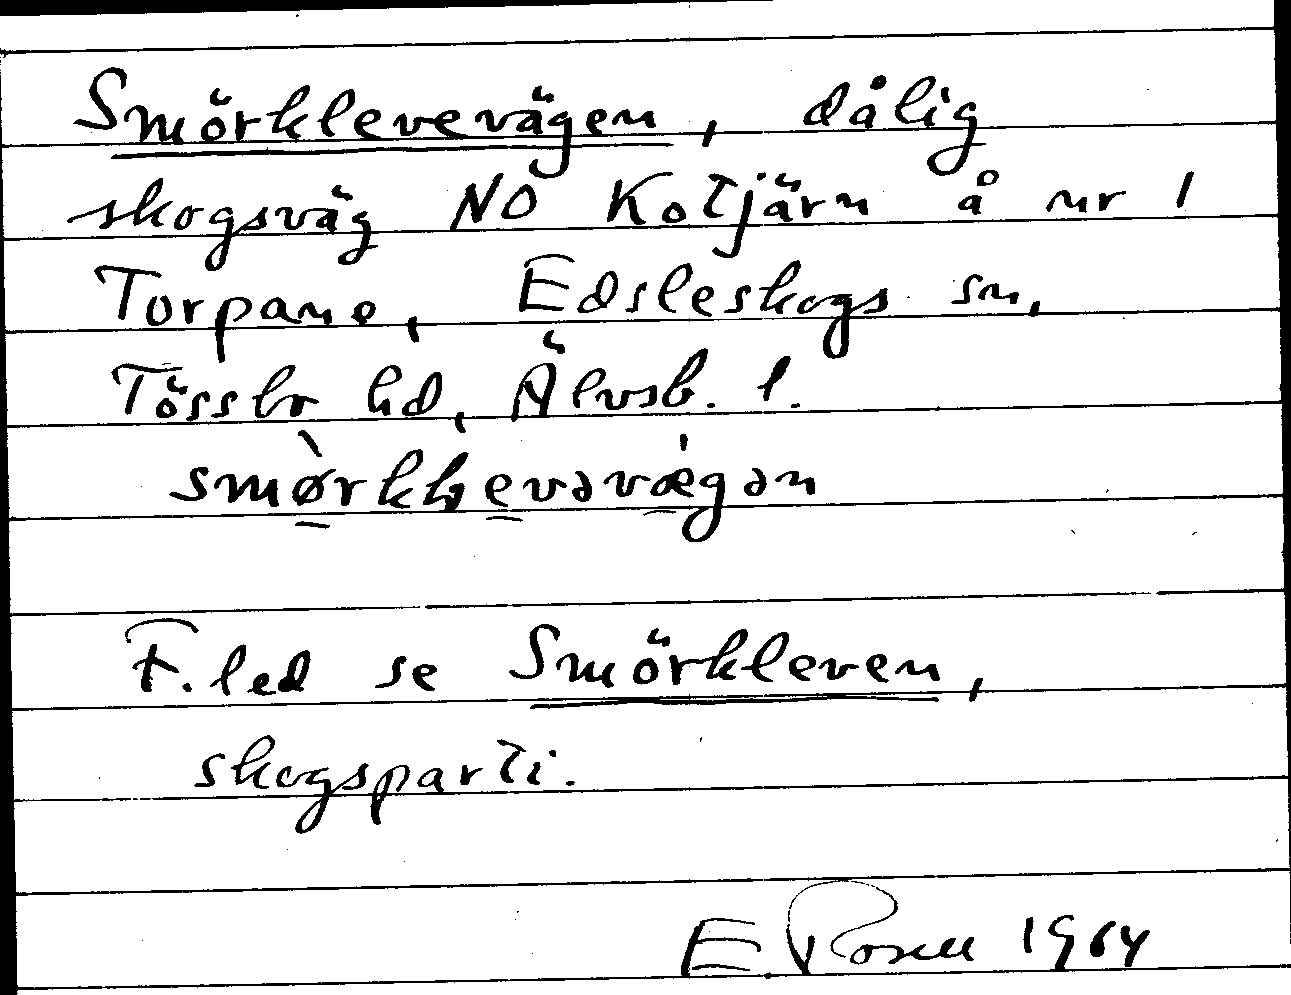 Smörklevevägen, dålig
skogsväg NO Kotjärn å nr 1
Torpane, Edsleskogs sn,
Tössbo hd, Älvsb. l.
F.led se Smörkleven,
skogsparti.
E Rosell 1964